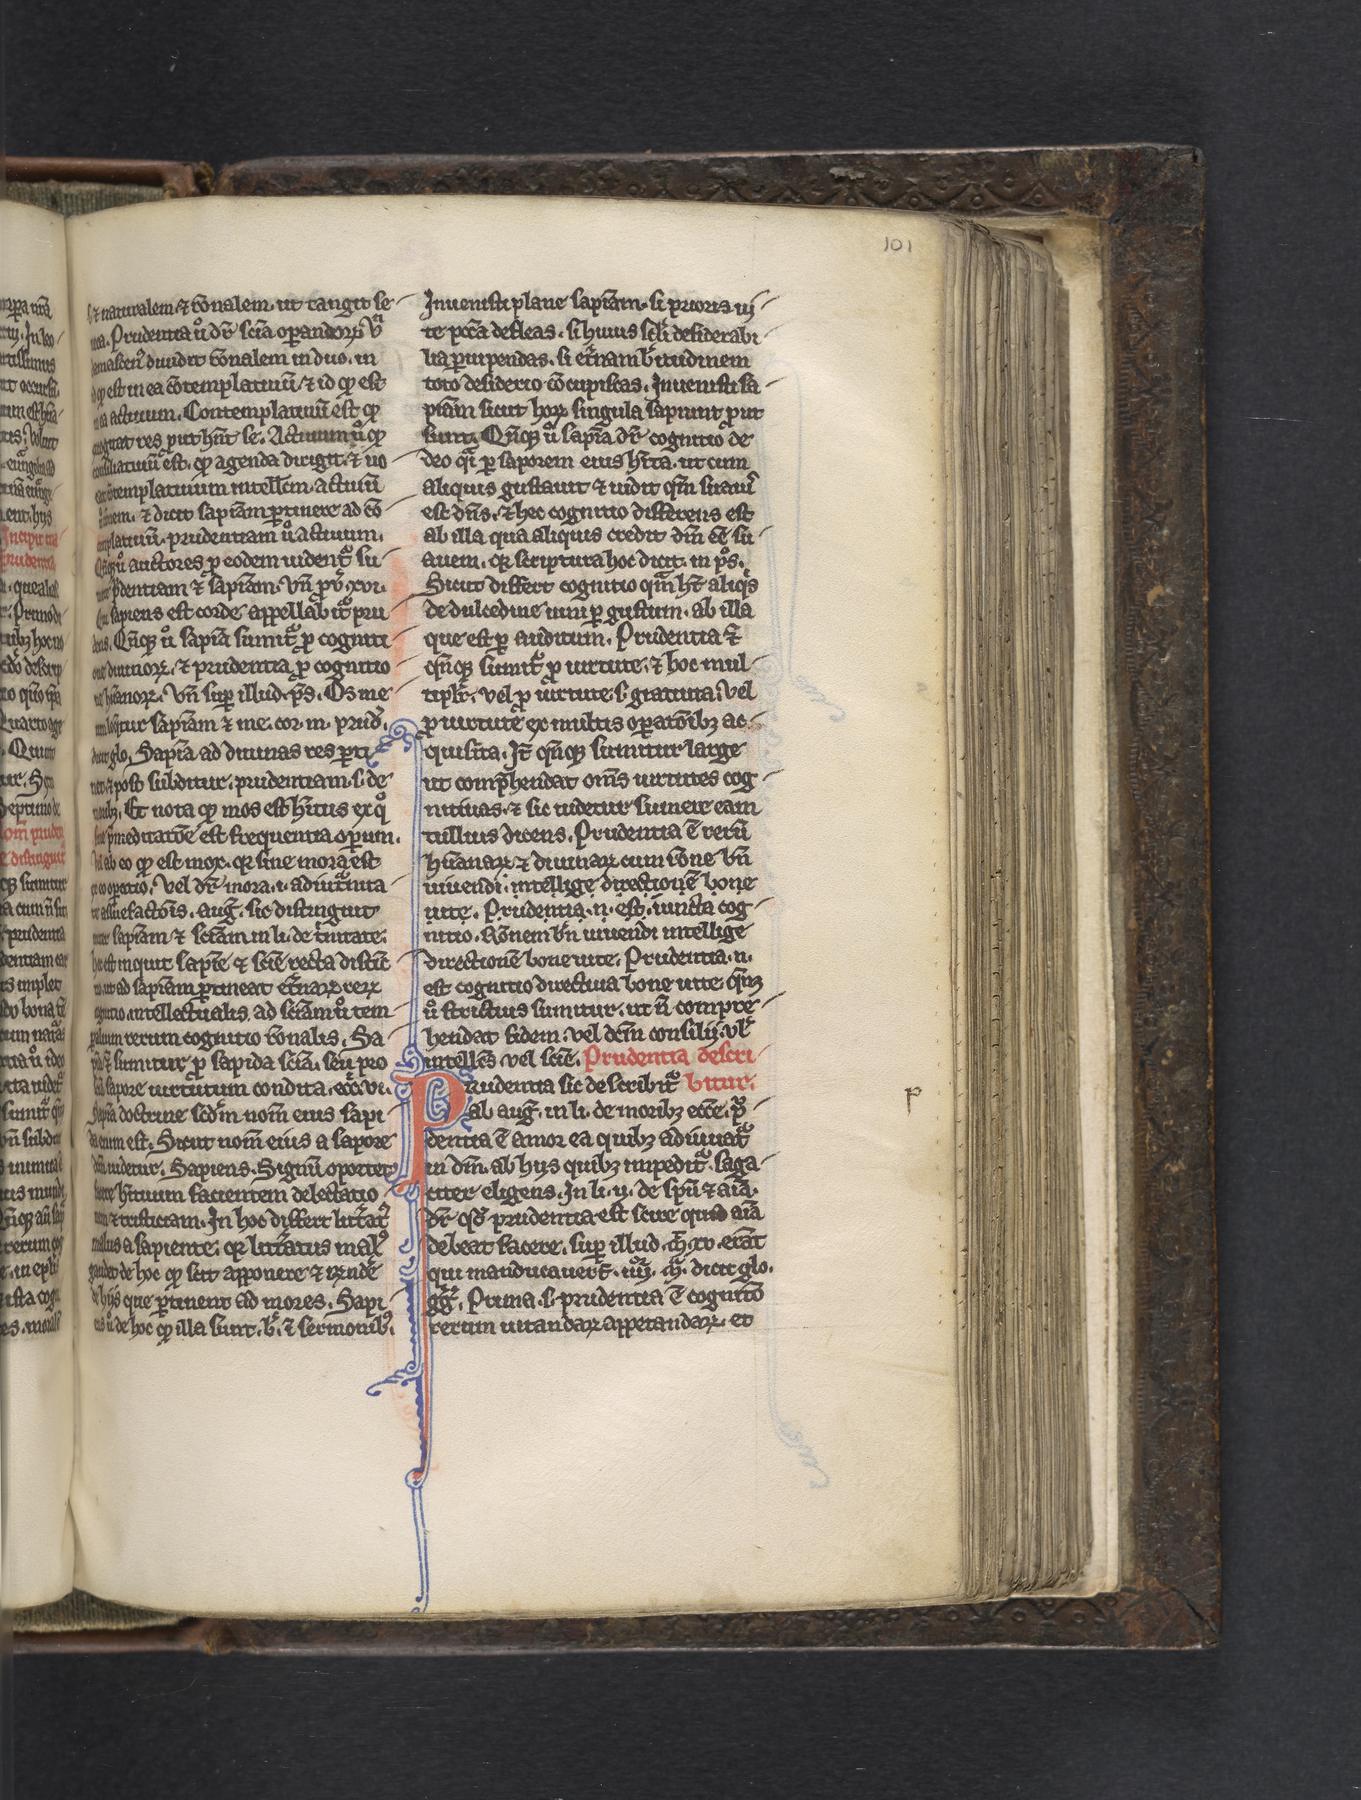 101
et naturalem ⁊ rōnalem. ut tangit se
ca. Prudentia ū dr̄ scīa operandorꝝ Vn̄
damascen⁹ diuidit rōnalem in duo. in
id qͥ est in ea cōtemplatiuū ⁊ id qͥ est
in ea actiuum. Contemplatiuū est qͥ
cogitat res put hn̄t se. Actiuum ū qͥ
consiliatiuū est. qͥ agenda dirigit. ⁊ uo
cat cōtemplatiuum intellc̄m. actiuū
rōnem. ⁊ dicit sapīam ꝑtinere ad cō
templatiuū. prudentiam ū ad actiuum.
Qn̄qꝫ ū auctores ꝑ eodem uident̄ su
mere pdentiam ⁊ sapīam. Vn̄ ꝓū. xvi.
Qui sapiens est corde appellabit̄ pru
dens. Qn̄qꝫ ū sapīa sumit̄ ꝓ cogniti
one diuinorꝝ. ⁊ prudentia ꝓ cognitio
ne hūanorꝝ. Vn̄ sup illud. ps̄. Os me
um loq̄tur sapīam ⁊ me. cor. m. prud̄.
dicit glo. Sapīa ad diuinas res ꝑti
net. ⁊ post subditur. prudentiam. s. de
moribꝫ. Et nota qͥ mos est hītus ex qͦ
siue p̄meditatōe est frequentia operum.
Vel ab eo qͥ est mox. qꝛ sine mora est
eius operatio. Vel dr̄ mora. i. a diuturna
re assuefactōis. auḡ. sic distinguit
inter sapīam ⁊ scīam in li. de t̄nitate.
hec est inquit sapīe ⁊ scīe recta distīc
tio. ut ad sapīam ꝑtineat et̄narꝝ rerꝝ
cognitio intellectualis. ad scīam ū tem
palium rerum cognitio rōnalis. Sa
pīa ⁊ sumitur ꝓ sapida scīa. seu pro
scīa sapore uirtutum condita. ecc̄i. vi.
Sapīa doctrine scd̄m nom̄ eius sapi
da eum est. Sicut nom̄ eius a sapore
dictū uidetur. Sapiens. Signū oportet
facere hītuum facientem delectatio
nem ⁊ tristiciam. In hoc differt litt̄at⁹
malus a sapiente. qꝛ litt̄atus mal⁹
gaudet de hoc qͥ scit apponere ⁊ rn̄de
de hijs que ꝑtinent ad mores. Sapi
ens ū de hoc qͥ illa sunt. b̄. ⁊ sermonibꝫ.
Inuenisti plane sapīam. si prioris ui
te pcc̄a defleas. si huius scl̄i desiderabi
lia ꝑuipendas. si et̄nam b̄titudinem
toto desiderio cōcupiscas. Inuenisti sa
pīam sicut horꝝ singula sapiunt put
sunt. Qn̄qꝫ ū sapīa dr̄ cognitio de
deo q̄i ꝑ saporem eius hīta. ut cum
aliquis gustauit ⁊ uidit qm̄ suauis
est dn̄s. ⁊ hec cognitio differens est
ab illa qua aliquis credit dm̄ ēē su
auem. qꝛ scriptura hoc dicit. in ps̄.
Sicut differt cognitio qm̄ ht̄ aliqͥs
de dulcedine uini ꝑ gustum. ab illa
que est ꝑ auditum. Prudentia ⁊
qn̄qꝫ sumit̄ ꝓ uirtute. ⁊ hoc mul
tiplr̄. vel ꝓ uirtute. s. gratuita. Vel
ꝓ uirtute ex multis operatōibꝫ ac
quisita. It̄ qn̄qꝫ sumitur large
ut compͥhendat om̄s uirtutes cog
nitiuas. ⁊ sic uidetur sumere eam
tullius dicens. Prudentia ē rerū
hūanarꝝ ⁊ diuinarꝝ cum rōne bn̄
uiuendi. intellige directionē bone
uite. Prudentia. n. est. iuncta cog
nitio. Rōnem bn̄ uiuendi intellige
directionē bone uite. Prudentia. n.
est cognitio directiua bone uite. qn̄qꝫ
ū strictius sumitur. ut n̄ compre
hendat fidem. vel dcm̄ consilij. vl̄
intellc̄s vel scīe. Prudentia descri
Prudentia sic describit̄ bitur.
ab auḡ. in li. de moribꝫ ecce. pͣ
dentia ē amor ea quibꝫ adiuuat̄
in dm̄. ab hijs quibꝫ impedit̄. saga
citer eligens. In li. ij. de spū ⁊ aīa.
dr̄ qd̄ prudentia est scire quid aīa
debeat facere. sup illud. m̄. xv. erāt
qui manducauer̄t. iiij. m̄. dicit glo.
gḡ. Prima. s. prudentia ē cognitō
rerum uitandarꝝ appetandarꝝ. et
p